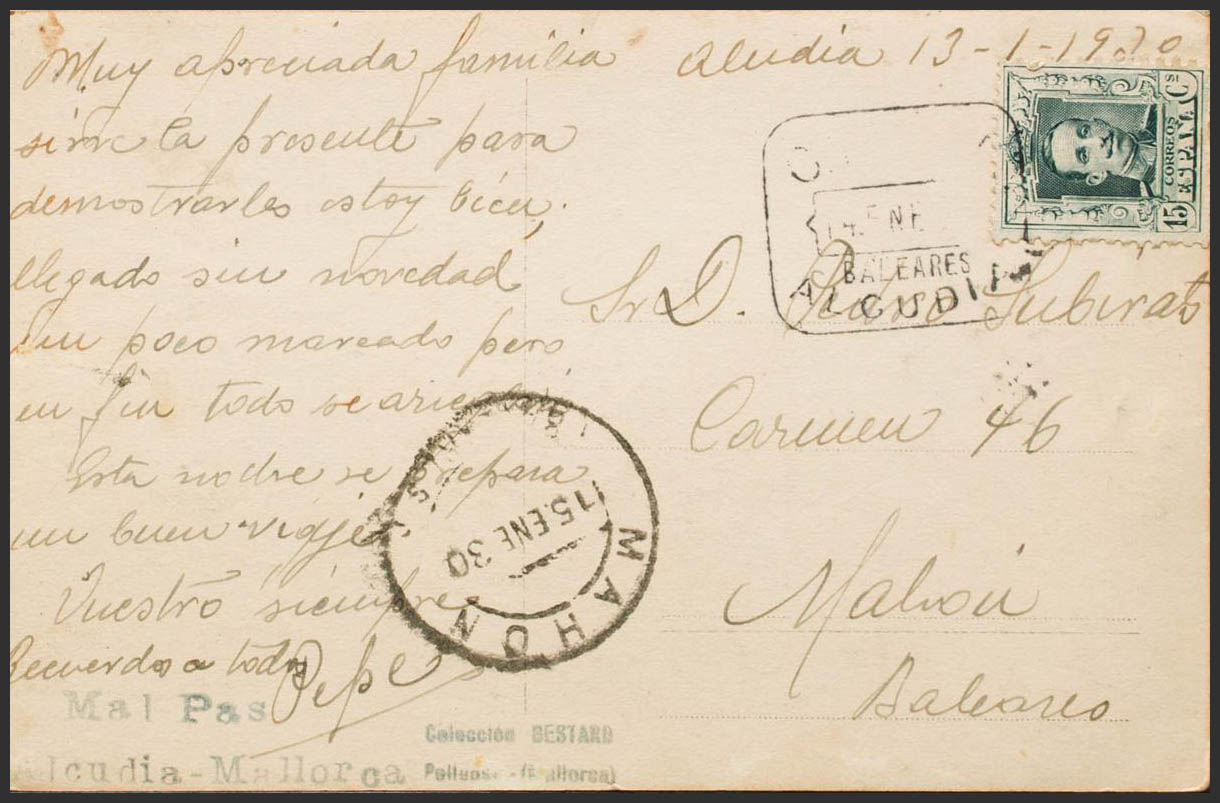 Muy apreciada familia
sirve la presente para
demostrarles estoy bien,
llegado sin novedad
un poco mareado pero
en fin todo se
Esta noche se prepara
un buen viaje.
Vuestro siempre
Recuerdos a todos
Pepe
Mal Pas
lcudia-Mallorca
Colección BESTARD
(Mallorca)
Alcudia 13-1-1930
15 Cs
CORREOS
ESPAÑA
14 ENE
BALEARES
ALCUDIA
Sr D. Subirats
Carmen 46
Mahón
Baleares
BALEARES
15.ENE 30
MAHON